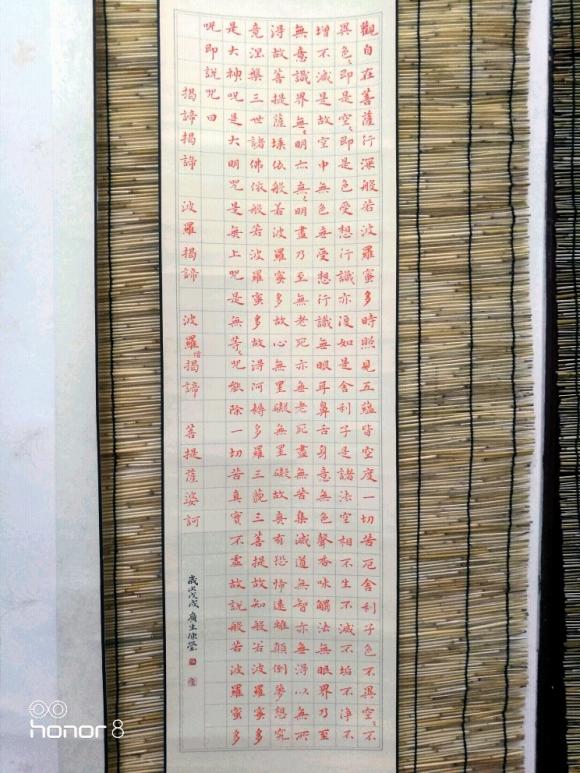 觀自在菩薩行深般若波羅蜜多時照見五蘊皆空度一切苦厄舍利子色不異空〻不
異色〻即是空〻即是色受想行識亦復如是舍利子是諸法空相不生不滅不垢不淨不
增不減是故空中無色無受想行識無眼耳鼻舌身意無色聲香味觸法無眼界乃至
無意識界無〻明亦無〻明盡乃至無老死亦無老死盡無苦集滅道無智亦無得以無所
得故菩提薩埵依般若波羅蜜多故心無罣礙無罣礙故無有恐怖遠離顛倒夢想究
竟涅槃三世諸佛依般若波羅蜜多故得阿耨多羅三藐三菩提故知般若波羅蜜多
是大神呪是大明咒是無上呪是無等〻呪能除一切苦真實不虛故說般若波羅蜜多
呪即說呪曰
揭諦揭諦 波羅揭諦 波羅僧揭諦 菩提薩婆訶
歲次戊戌
honor 8